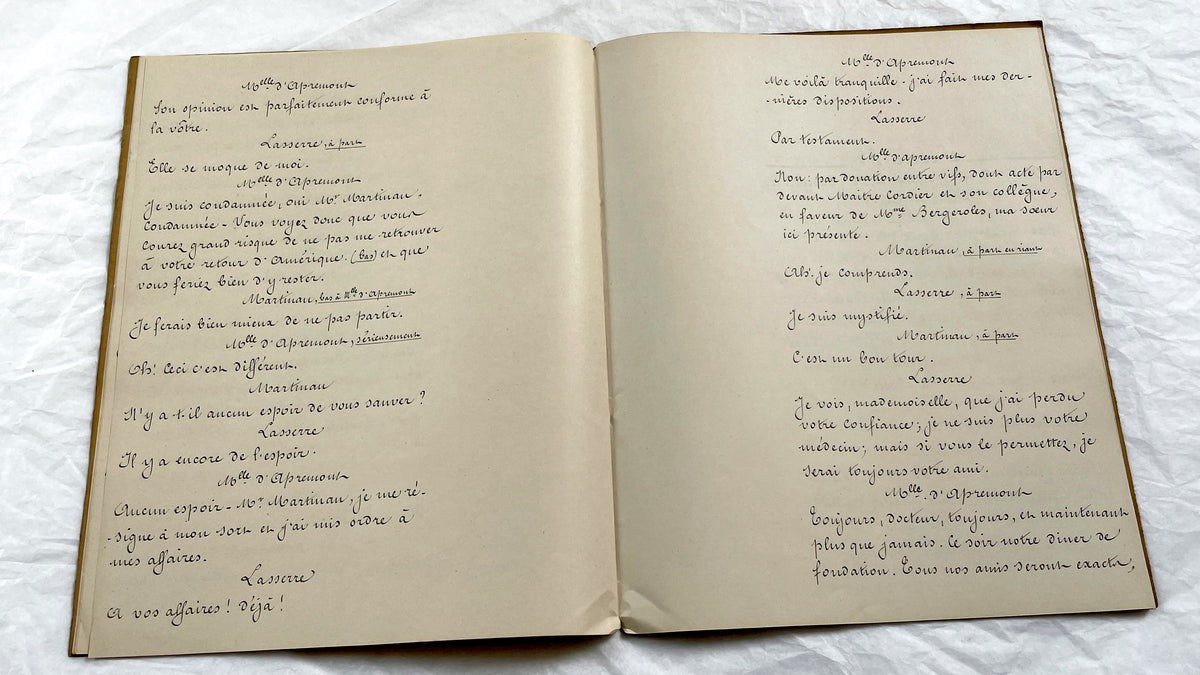 Melle d'Apremont
Son opinion est parfaitement conforme à
la vôtre.
Lasserre, à part
Elle se moque de moi.
Melle d'Apremont
Je suis condamnée, oui Mr Martinau.
Condamnée - Vous voyez donc que vous
courez grand risque de ne pas me retrouver
à votre retour d'Amérique. (bas) et que
vous feriez bien d'y rester.
Martinau, bas à Mlle d'Apremont
Je ferais bien mieux de ne pas partir.
Mlle d'Apremont, sérieusement
Oh! Ceci c'est différent.
Martinau
N'y a t-il aucun espoir de vous sauver?
Lasserre
Il y a encore de l'espoir.
Mlle d'Apremont
Aucun espoir - Mr Martinau, je me ré-
-signe à mon sort et j'ai mis ordre à
mes affaires.
Lasserre
A vos affaires! déjà!
Mlle d'Apremont
Me voilà tranquille - j'ai fait mes der-
-nières dispositions.
Lasserre
Par testament.
Mlle d'apremont
Non: par donation entre vifs, dont acte par
devant Maitre Cordier et son collègue,
en faveur de Mme Bergeroles, ma sœur
ici présente.
Martinau, à part en riant
Ah! je comprends.
Lasserre, à part
Je suis mystifié.
Martinau, à part
C'est un bon tour.
Lasserre
Je vois, mademoiselle, que j'ai perdu
votre confiance; je ne suis plus votre
médecin; mais si vous le permettez, je
serai toujours votre ami.
Mlle. d'Apremont
Toujours, docteur, toujours, et maintenant
plus que jamais. Ce soir notre diner de
fondation. Tous nos amis seront exacts,